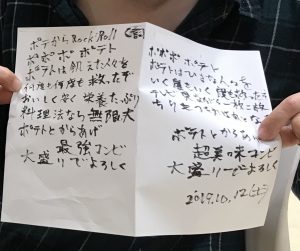 ポテトからRock Roll
ポポポ ポテト
ポテトは飢えた人々を
何度も何度も救ったぞ
おいしく安く栄養たっぷり
料理法なら無限大
ポテトとからあげ
最強コンビ
大盛りでよろしく
ポポポ ポテト
ポテトとからあげ
超美味コンビ
大盛りでよろしく
2019.10.12(土)